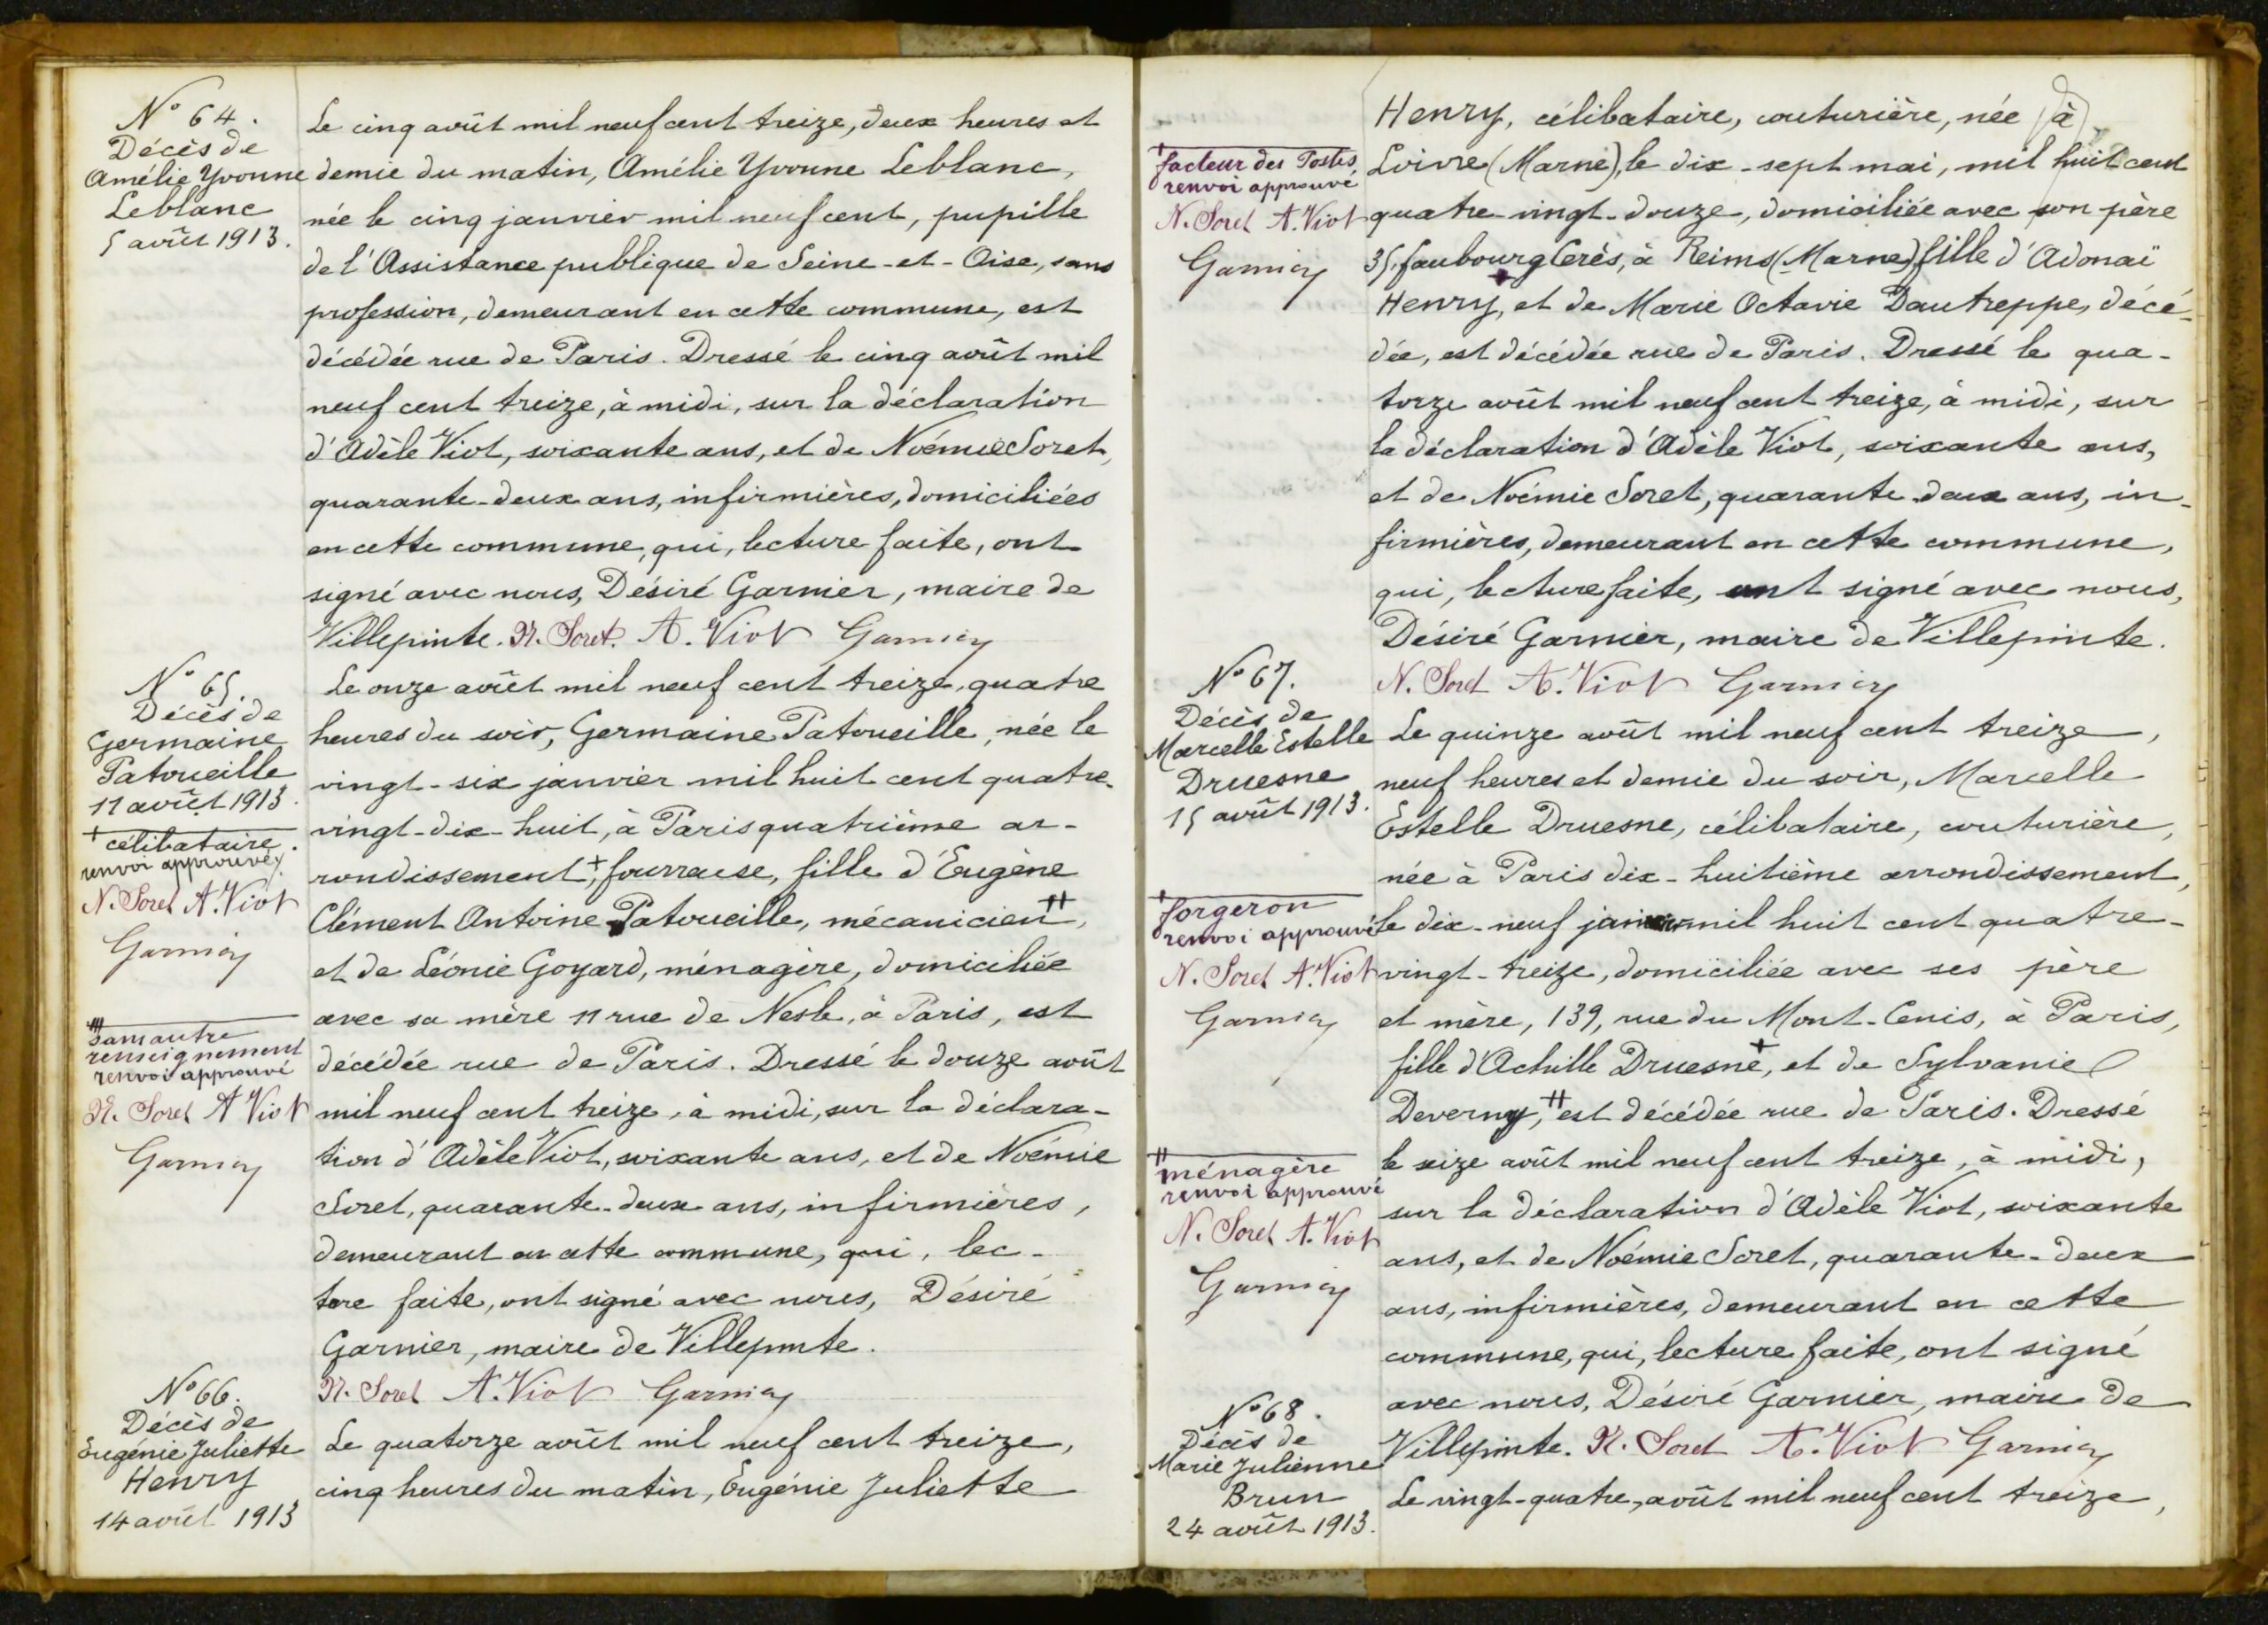 N° 64.
Décès de
Amélie Yvonne
Leblanc
5 août 1913.
Le cinq août mil neuf cent treize, deux heures et
demie du matin, Amélie Yvonne Leblanc,
née le cinq janvier mil neuf cent, pupille
de l'Assistance publique de Seine-et-Oise, sans
profession, demeurant en cette commune, est
décédée rue de Paris. Dressé le cinq août mil
neuf cent treize, à midi, sur la déclaration
d'Adèle Viot, soixante ans, et de Noémie Soret,
quarante-deux ans, infirmières, domiciliées
en cette commune, qui, lecture faite, ont
signé avec nous, Désiré Garnier, maire de
Villepinte. N. Soret. A. Viot Garnier
N° 65.
Décès de
Germaine
Patoueille
11 août 1913.
+ célibataire.
renvoi approuvé.
N. Soret A. Viot
Garnier
+++ sans autre
renseignement
renvoi approuvé
N. Soret A Viot
Garnier
Le onze août mil neuf cent treize, quatre
heures du soir, Germaine Patoueille, née le
vingt-six janvier mil huit cent quatre-
vingt-dix-huit, à Paris quatrième ar-
rondissement +, fourreuse, fille d'Eugène
Clément Antoine Patoueille, mécanicien ++,
et de Léonie Goyard, ménagère, domiciliée
avec sa mère 11 rue de Nesle, à Paris, est
décédée rue de Paris. Dressé le douze août
mil neuf cent treize, à midi, sur la déclara-
tion d'Adèle Viot, soixante ans, et de Noémie
Soret, quarante-deux ans, infirmières,
demeurant en cette commune, qui, lec-
ture faite, ont signé avec nous, Désiré
Garnier, maire de Villepinte.
N. Soret A. Viot Garnier
N° 66.
Décès de
Eugénie Juliette
Henry
14 août 1913
Le quatorze août mil neuf cent treize,
cinq heures du matin, Eugénie Juliette
Henry, célibataire, couturière, née à
Loivre (Marne), le dix-sept mai, mil huit cent
quatre-vingt-douze, domiciliée avec son père
35, faubourg Cerès, à Reims (Marne) fille d'Adonaï
Henry, et de Marie Octavie Dautreppe, décé-
dée, est décédée rue de Paris. Dressé le qua-
torze août mil neuf cent treize, à midi, sur
la déclaration d'Adèle Viot, soixante ans,
et de Noémie Soret, quarante-deux ans, in-
firmières, demeurant en cette commune,
qui, lecture faite, ont signé avec nous,
Désiré Garnier, maire de Villepinte.
N. Soret A. Viot Garnier
+ facteur des Postes
renvoi approuvé
N. Soret A. Viot
Garnier
N° 67.
Décès de
Marcelle Estelle
Druesne
15 août 1913.
+ forgeron
renvoi approuvé
N. Soret A. Viot
Garnier
++ ménagère
renvoi approuvé
N. Soret A. Viot
Garnier
Le quinze août mil neuf cent treize,
neuf heures et demie du soir, Marcelle
Estelle Druesne, célibataire, couturière,
née à Paris dix-huitième arrondissement,
le dix-neuf janvier mil huit cent quatre-
vingt-treize, domiciliée avec ses père
et mère, 139, rue du Mont-Cenis, à Paris,
fille d'Achille Druesne +, et de Sylvanie
Deverny, ++ est décédée rue de Paris. Dressé
le seize août mil neuf cent treize, à midi,
sur la déclaration d'Adèle Viot, soixante
ans, et de Noémie Soret, quarante-deux
ans, infirmières, demeurant en cette
commune, qui, lecture faite, ont signé
avec nous, Désiré Garnier, maire de
Villepinte. N. Soret A. Viot Garnier
N° 68.
Décès de
Marie Julienne
Brun
24 août 1913.
Le vingt-quatre, août mil neuf cent treize,